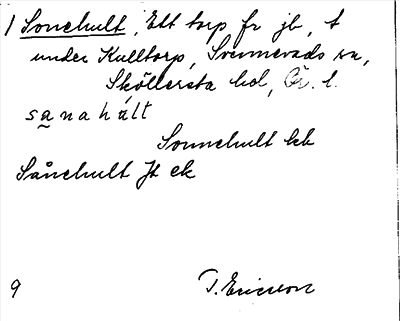 1 Sonehult, Ett torp fr jb, t
under Kulltorp, Svennevads sn,
Sköllersta hd, Ör. l.
sa̲nahált
Sonnehult kb
Sånehult Jt ek
9 T. Ericsson